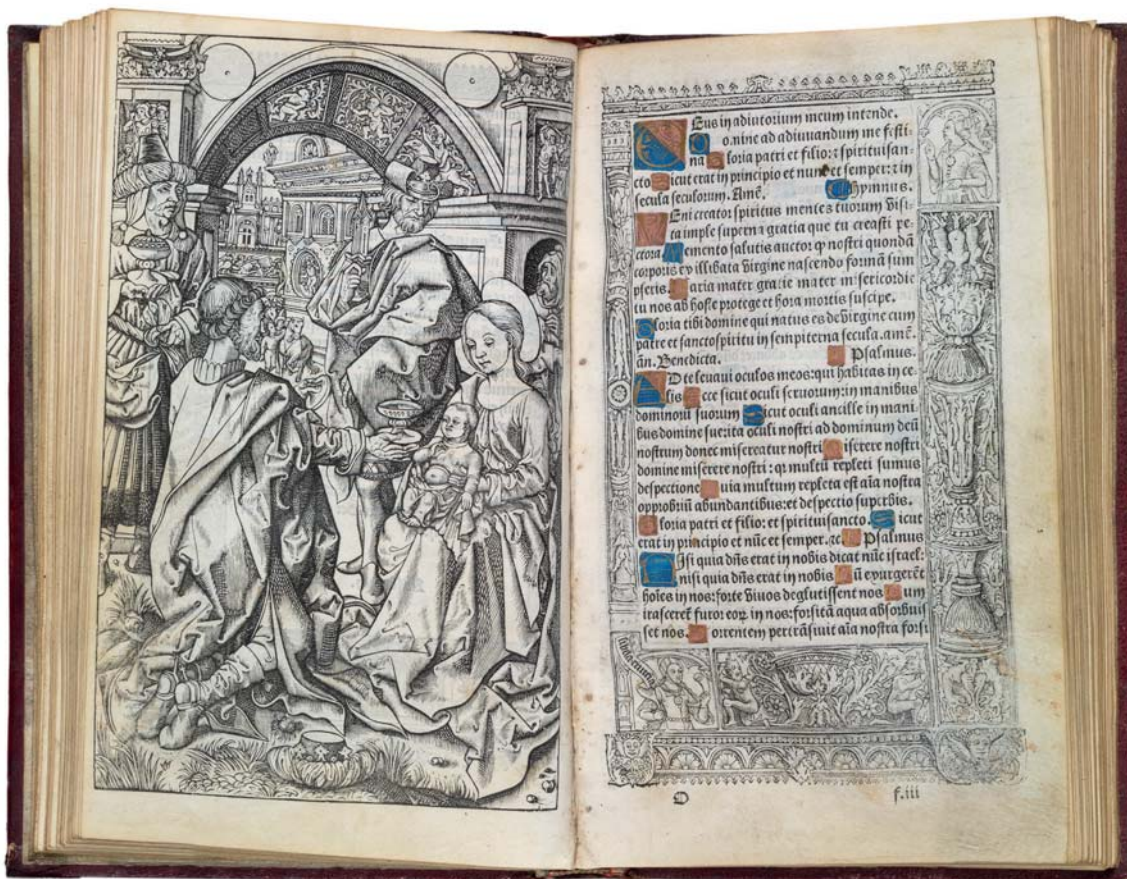 Deus in adiutorium meum intende.
Domine ad adiuuandum me festi-
na Gloria patri et filio: ⁊ spiritui san-
cto Sicut erat in principio et nunc et semper: ⁊ in
secula seculorum. Amẽ. Hymnus.
Veni creator spiritus mentes tuorum visi-
ta imple superna gratia que tu creasti pe-
ctora Memento salutis auctor ꝙ nostri quondã
corporis ex illibata virgine nascendo formã sum
pseris. Maria mater gratie mater misericordie
tu nos ab hoste protege et hora mortis suscipe.
Gloria tibi domine qui natus es de virgine cum
patre et sancto spiritu in sempiterna secula. amẽ.
añ. Benedicta. Psalmus.
Ad te leuaui oculos meos: qui habitas in ce-
lis Ecce sicut oculi seruorum: in manibus
dominoꝝ suorum Sicut oculi ancille in mani
bus domine sue: ita oculi nostri ad dominum deũ
nostrum donec misereatur nostri Miserere nostri
domine miserere nostri: qꝛ multũ repleti sumus
despectione Quia multum repleta est aĩa nostra
opprobriũ abundantibus: et despectio superbis.
Gloria patri et filio: et spiritui sancto. Sicut
erat in principio et nũc et semper. ⁊c. Psalmus
Nisi quia dñs erat in nobis dicat nũc israel:
nisi quia dñs erat in nobis Cũ exurgerẽt
hoĩes in nos: forte viuos deglutissent nos Cum
irasceret̃ furor eoꝝ in nos: forsitã aqua absorbuis
set nos. Torrentem pertrãsiuit aĩa nostra forsi
f.iii